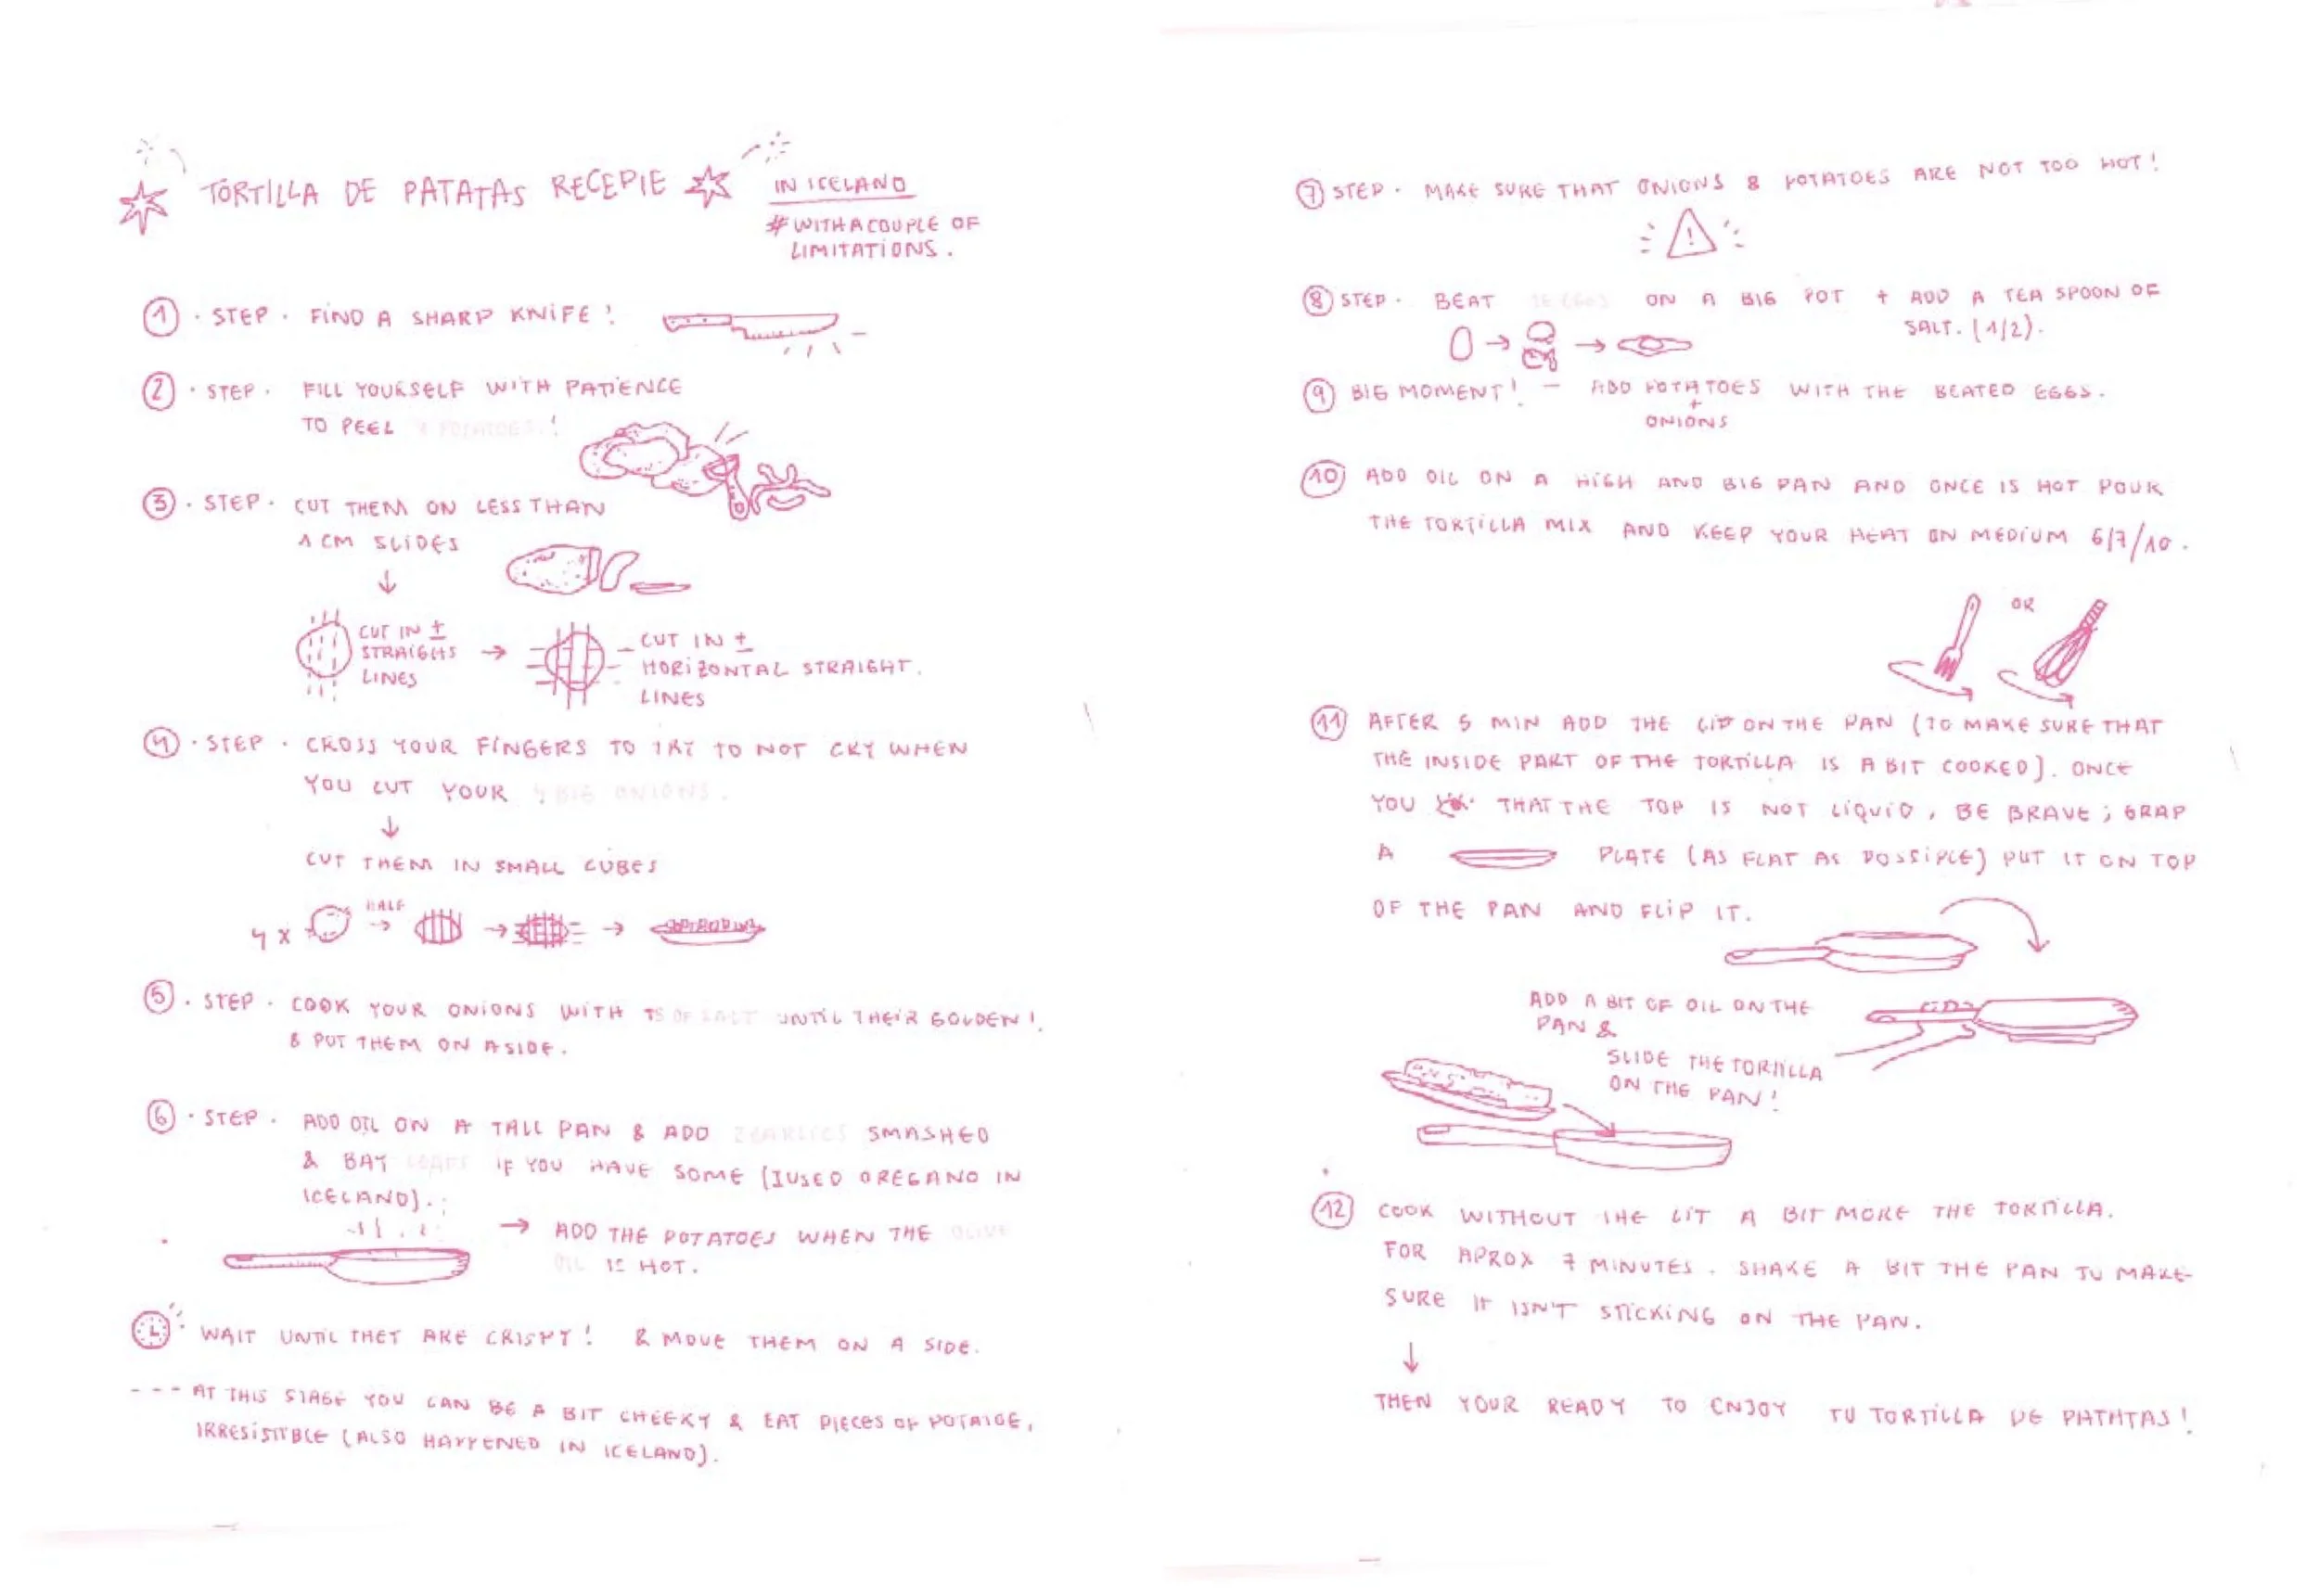 TORTILLA DE PATATAS RECEPIE
IN ICELAND
#WITHACOUPLE OF
LIMITATIONS.
1 · STEP · FIND A SHARP KNIFE!
2 · STEP · FILL YOURSELF WITH PATIENCE
TO PEEL POTATOES!
3 · STEP · CUT THEM ON LESS THAN
1 CM SLIDES
CUT IN ±
STRAIGHS
LINES
CUT IN ±
HORIZONTAL STRAIGHT.
LINES
4 · STEP · CROSS YOUR FINGERS TO TRY TO NOT CRY WHEN
YOU CUT YOUR 4 BIG ONIONS.
CUT THEM IN SMALL CUBES
4 x
HALF
5 · STEP · COOK YOUR ONIONS WITH TS OF SALT UNTIL THEIR GOLDEN!
& PUT THEM ON ASIDE.
6 · STEP · ADD OIL ON A TALL PAN & ADD 2 GARLICS SMASHED
& BAY IF YOU HAVE SOME (I USED OREGANO IN
ICELAND).
→ ADD THE POTATOES WHEN THE OLIVE
OIL IS HOT.
WAIT UNTIL THEY ARE CRISPY! & MOVE THEM ON A SIDE.
--- AT THIS STAGE YOU CAN BE A BIT CHEEKY & EAT PIECES OF POTATOE,
IRRESISITBLE (ALSO HAPPENED IN ICELAND).
7 STEP · MAKE SURE THAT ONIONS & POTATOES ARE NOT TOO HOT!
!
8 STEP · BEAT EGGS ON A BIG POT + ADD A TEA SPOON OF
SALT. (1/2).
9 BIG MOMENT! - ADD POTATOES WITH THE BEATED EGGS.
+
ONIONS
10 ADD OIL ON A HIGH AND BIG PAN AND ONCE IS HOT POUR
THE TORTILLA MIX AND KEEP YOUR HEAT ON MEDIUM 6/7/10.
OR
11 AFTER 5 MIN ADD THE LID ON THE PAN (TO MAKE SURE THAT
THE INSIDE PART OF THE TORTILLA IS A BIT COOKED). ONCE
YOU THAT THE TOP IS NOT LIQUID, BE BRAVE; GRAP
A PLATE (AS FLAT AS POSSIPLE) PUT IT ON TOP
OF THE PAN AND FLIP IT.
ADD A BIT OF OIL ON THE
PAN &
SLIDE THE TORTILLA
ON THE PAN!
12 COOK WITHOUT THE LIT A BIT MORE THE TORTILLA.
FOR APROX 7 MINUTES. SHAKE A BIT THE PAN TO MAKE
SURE IT ISN'T STICKING ON THE PAN.
THEN YOUR READY TO ENJOY TU TORTILLA DE PATATAS!